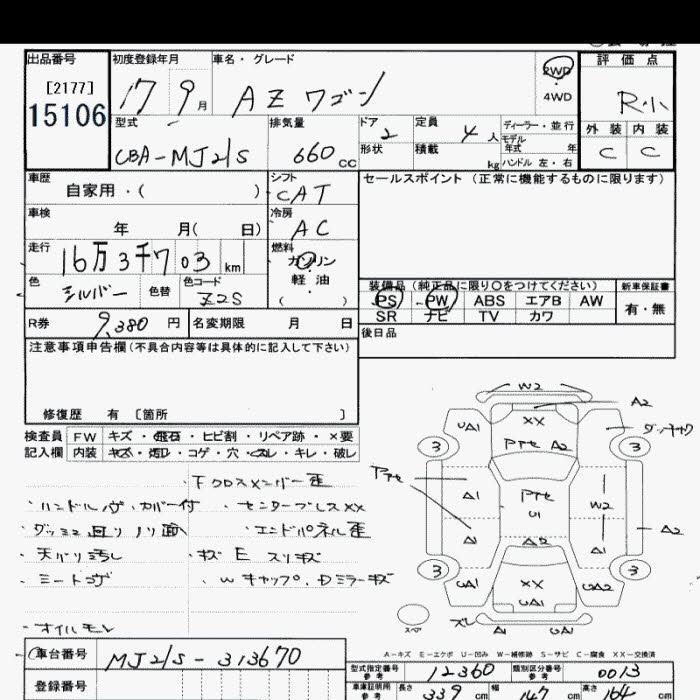 出品番号 初度登録年月 車名・グレード 2WD 評価点
[2177] 17 9月 AZワゴン 4WD R小
15106
型式 排気量 ドア 2 定員 4人 ディーラー・並行 外装 内装
CBA-MJ21S 660cc 形状 積載 kg モデル年式 年 C C
ハンドル 左・右
車歴 シフト セールスポイント (正常に機能するものに限ります)
自家用・( ) CAT
車検 冷房
年 月( 日) AC
走行 燃料
16万3千703km ガソリン
色 色替 色コード 軽油
シルバー Z2S ( )
装備品 (純正品に限り○をつけてください) 新車保証書
PS PW ABS エアB AW 有・無
SR ナビ TV カワ
R券 9,380円 名変期限 月 日
後日品
注意事項申告欄(不具合内容等は具体的に記入して下さい)
修復歴 有 〔箇所 〕
検査員 FW キズ・飛石・ヒビ割・リペア跡・×要
記入欄 内装 キズ・汚レ・コゲ・穴・スレ・キレ・破レ
・下クロスメンバー歪
・ハンドル カバー付 ・センタープレスXX
・ダッシュ ノリ面 ・エンドパネル歪
・天バリ汚し ・キズE スリキズ
・シートコゲ ・Wキャップ、Dミラーキズ
・オイルモレ
W2
A2
UA1 XX
3 アトセ A2 3
アトセ A1 アトセ W2
U1 A2
A1 A2 A1
3 3
UA1 XX UA2
UA1
スペア ズレ A1 A1
A-キズ E-エクボ U-凹み W-補修跡 S-サビ C-腐食 XX-交換済
車台番号 MJ21S-313670
型式指定番号 参考 12360 類別区分番号 参考 0013
登録番号
車庫証明用 参考 長さ 339cm 幅 147cm 高さ 164cm